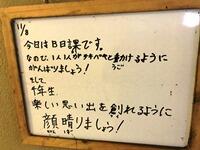 11/8
今日はB日課です。
なので、1人1人がテキパキと動けるように
うご
がんばりましょう!
そして
1年生、
楽しい思い出を創れるように
つく
顔晴りましょう!
がんば